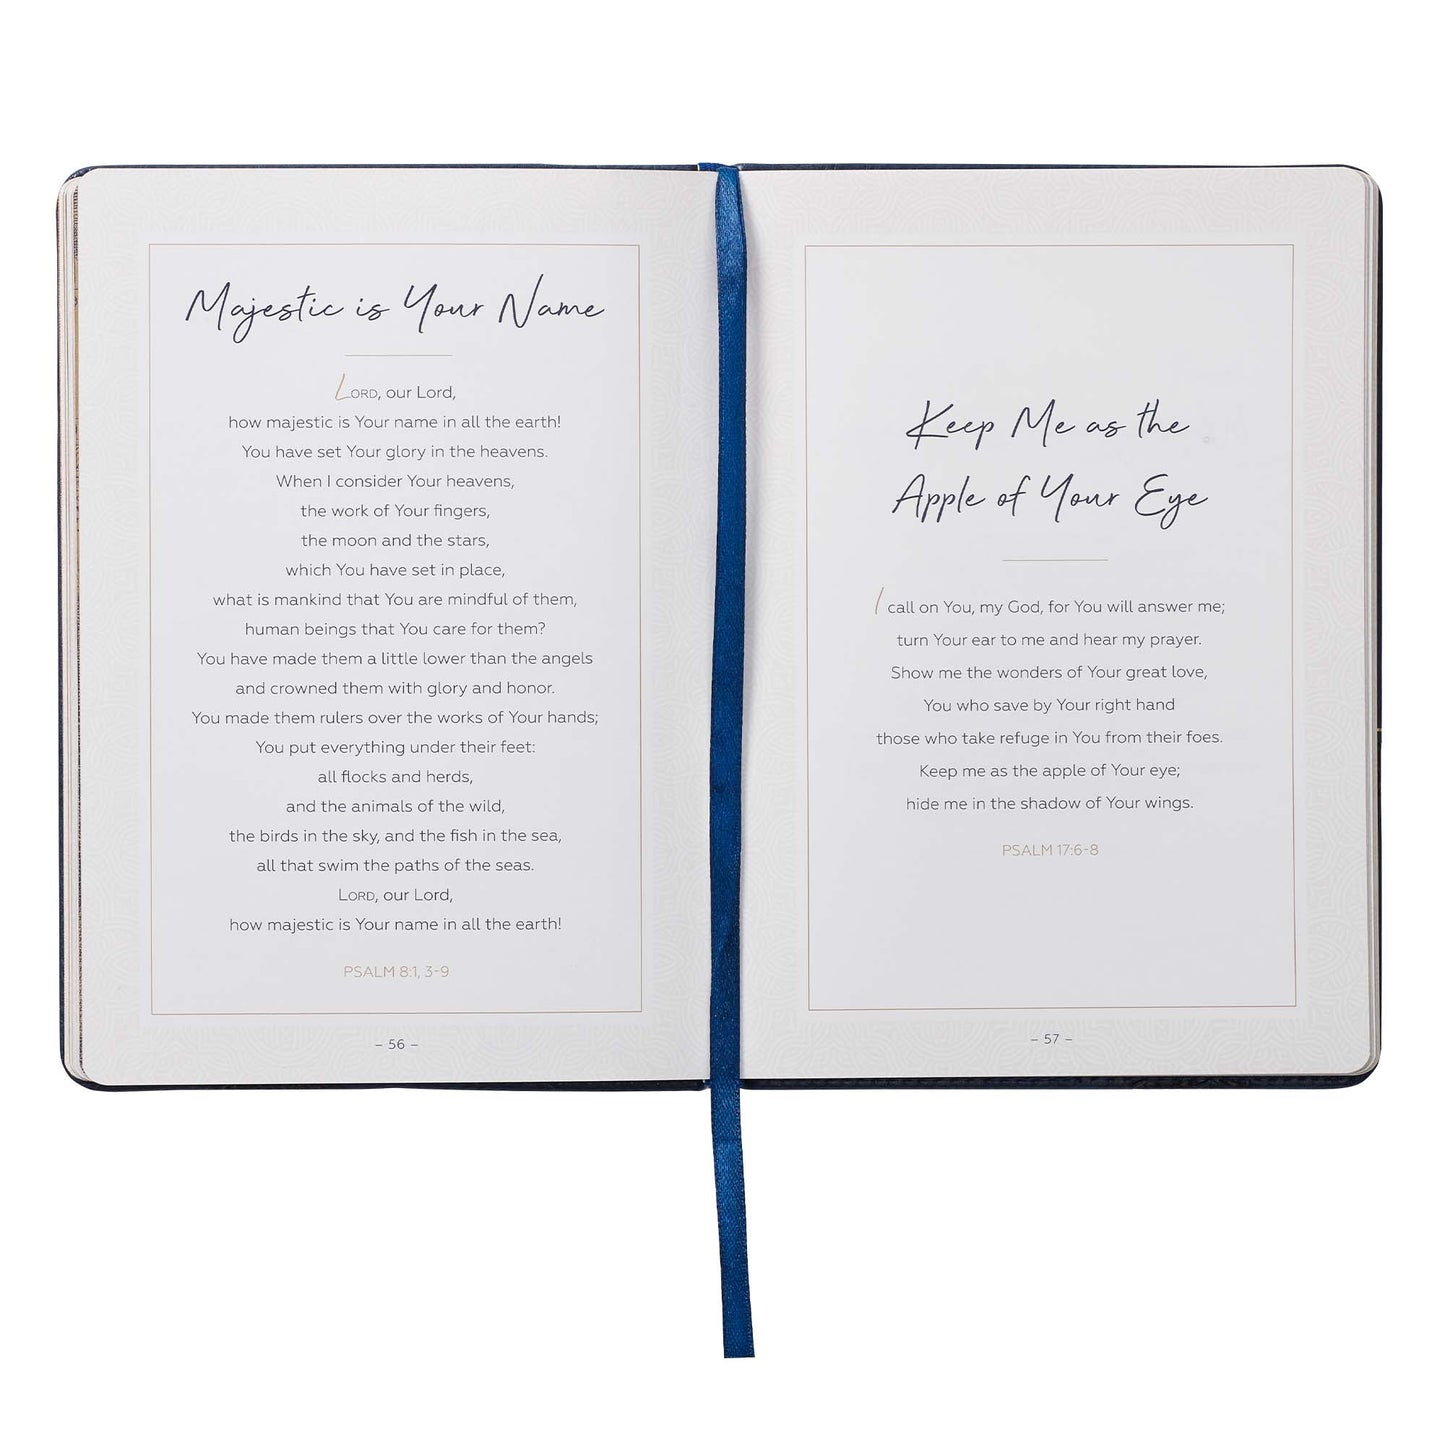 Majestic is Your Name
LORD, our Lord,
how majestic is Your name in all the earth!
You have set Your glory in the heavens.
When I consider Your heavens,
the work of Your fingers,
the moon and the stars,
which You have set in place,
what is mankind that You are mindful of them,
human beings that You care for them?
You have made them a little lower than the angels
and crowned them with glory and honor.
You made them rulers over the works of Your hands;
You put everything under their feet:
all flocks and herds,
and the animals of the wild,
the birds in the sky, and the fish in the sea,
all that swim the paths of the seas.
LORD, our Lord,
how majestic is Your name in all the earth!
PSALM 8:1, 3-9
– 56 –
Keep Me as the
Apple of Your Eye
I call on You, my God, for You will answer me;
turn Your ear to me and hear my prayer.
Show me the wonders of Your great love,
You who save by Your right hand
those who take refuge in You from their foes.
Keep me as the apple of Your eye;
hide me in the shadow of Your wings.
PSALM 17:6-8
– 57 –